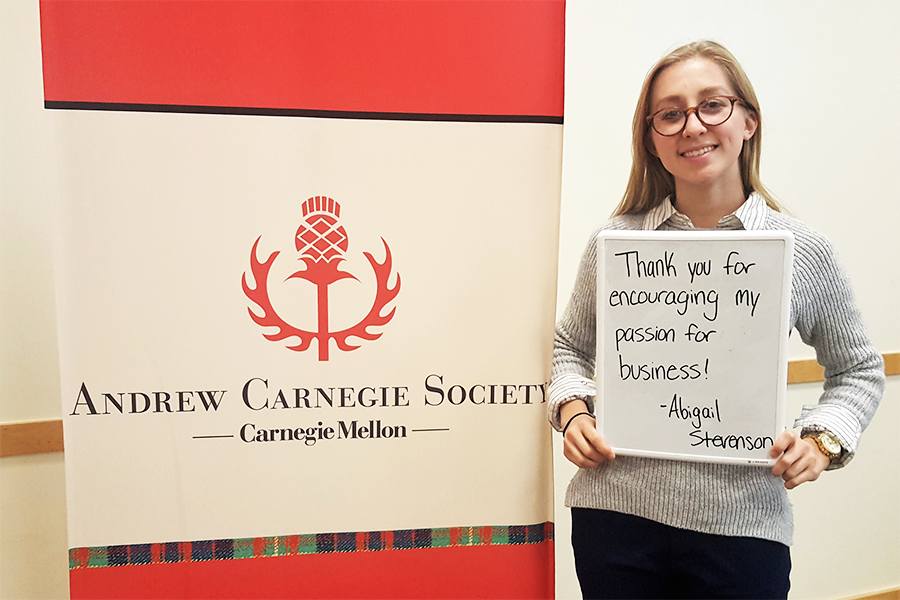 Andrew Carnegie Society
Carnegie Mellon
Thank you for
encouraging my
passion for
business!
-Abigail
Stevenson